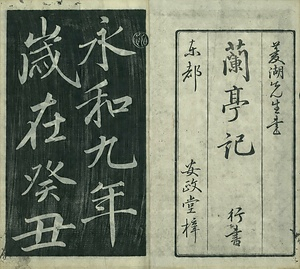 菱湖先生書
蘭亭記
行書
東都
安政堂梓
永和九年
歲在癸丑